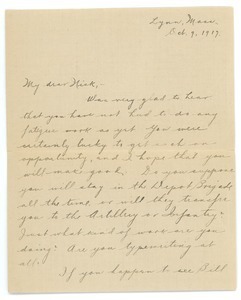 Lynn, Mass.
Oct. 9, 1917.
My dear Nick,-
Was very glad to hear
that you have not had to do any
fatigue work as yet. You were
certainly lucky to get such an
opportunity, and I hope that you
will make good. Do you suppose
you will stay in the Depot Brigade
all the time, or will they transfer
you to the Artillery or Infantry?
Just what kind of work are you
doing? Are you typewriting at
all?
If you happen to see Bill